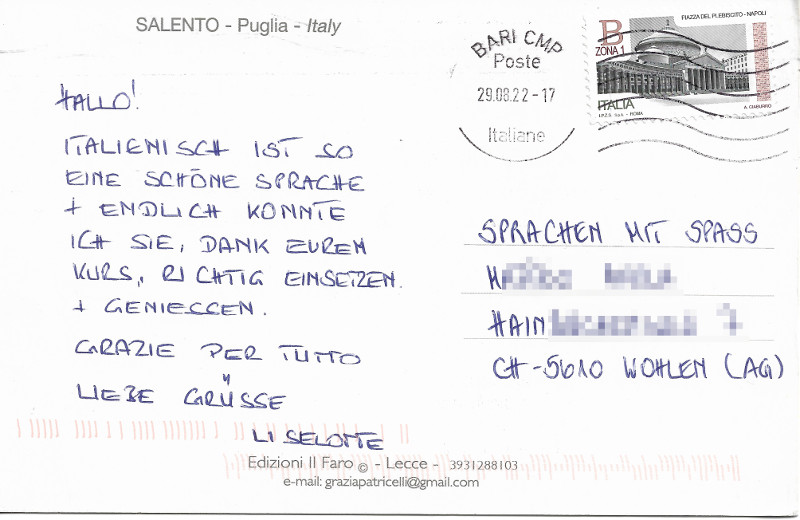 SALENTO - Puglia - Italy
BARI CMP
Poste
29.08.22 - 17
Italiane
PIAZZA DEL PLEBISCITO - NAPOLI
B
ZONA 1
ITALIA
I.P.Z.S. S.p.A. - ROMA
A. CIABURRO
HALLO!
ITALIENISCH IST SO
EINE SCHÖNE SPRACHE
+ ENDLICH KONNTE
ICH SIE, DANK EUREN
KURS, RICHTIG EINSETZEN.
+ GENIESSEN.
GRAZIE PER TUTTO
LIEBE GRÜSSE
LISELOTTE
SPRACHEN MIT SPASS
HAIN
CH-5610 WOHLEN (AG)
Edizioni Il Faro © - Lecce - 3931288103
e-mail: graziapatricelli@gmail.com